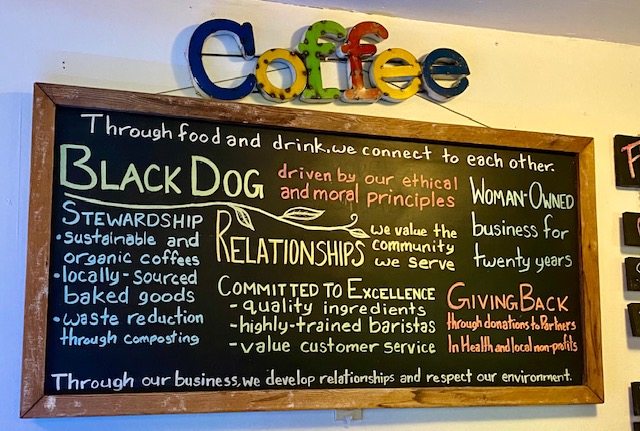 Coffee
Through food and drink, we connect to each other.
BLACK DOG
driven by our ethical
and moral principles
WOMAN-OWNED
business for
twenty years
STEWARDSHIP
• sustainable and
organic coffees
• locally-sourced
baked goods
• waste reduction
through composting
RELATIONSHIPS
we value the
community
we serve
COMMITTED TO EXCELLENCE
- quality ingredients
- highly-trained baristas
- value customer service
GIVING BACK
through donations to Partners
In Health and local non-profits
Through our business, we develop relationships and respect our environment.